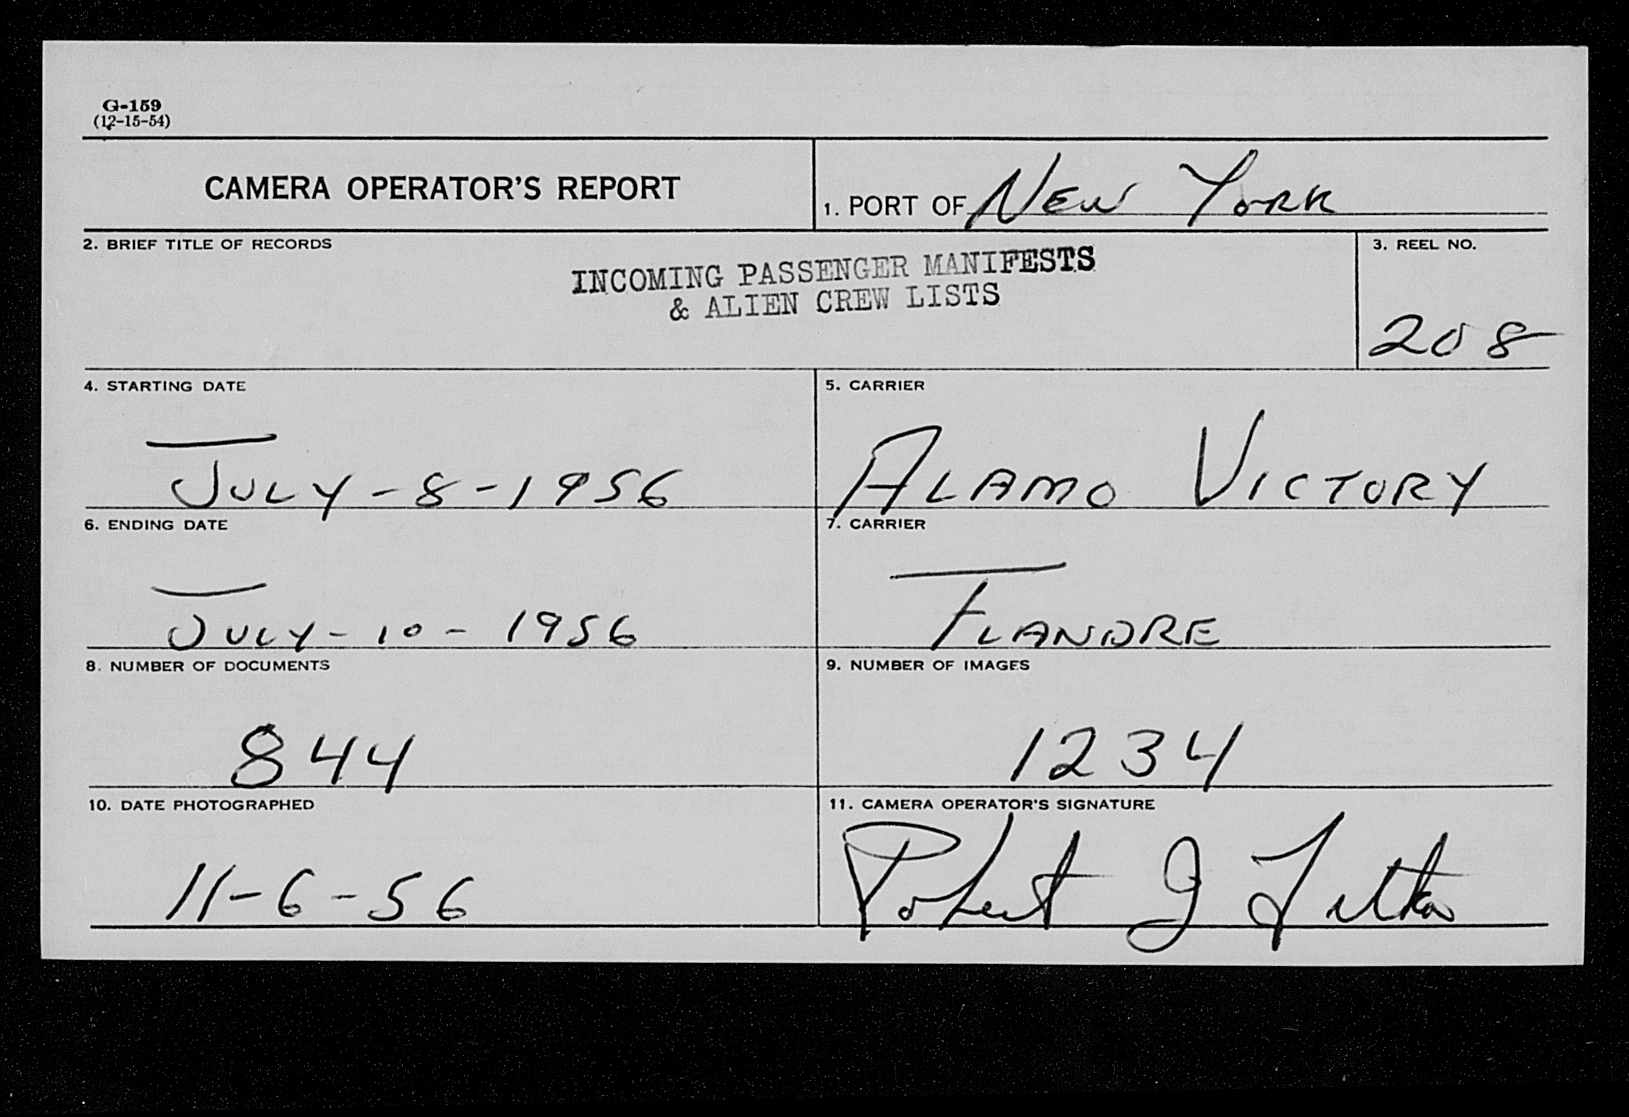 G-159
(12-15-54)
CAMERA OPERATOR'S REPORT
1. PORT OF NEW YORK
2. BRIEF TITLE OF RECORDS
INCOMING PASSENGER MANIFESTS
& ALIEN CREW LISTS
3. REEL NO.
208
4. STARTING DATE
JULY-8-1956
5. CARRIER
ALAMO VICTORY
6. ENDING DATE
JULY-10-1956
7. CARRIER
FLANDRE
8. NUMBER OF DOCUMENTS
844
9. NUMBER OF IMAGES
1234
10. DATE PHOTOGRAPHED
11-6-56
11. CAMERA OPERATOR'S SIGNATURE
Robert J